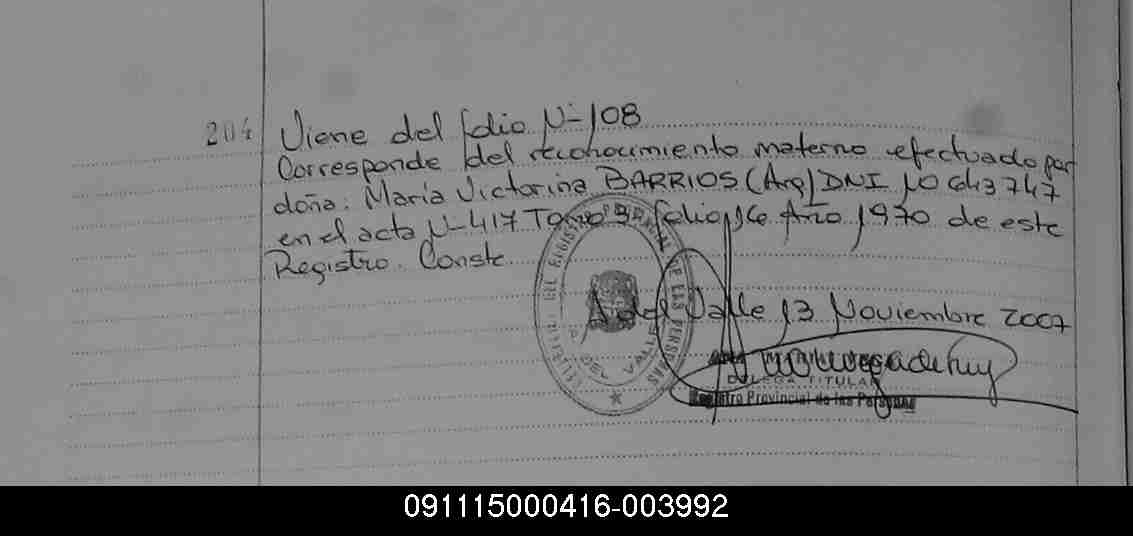 204 Viene del folio Nº 108
Corresponde del reconocimiento materno efectuado por
doña: María Victorina BARRIOS (Arg) DNI 10 643 747
en el acta Nº 417 Tomo 3 folio 16 Año 1970 de este
Registro. Conste
A del Valle 13 Noviembre 2007
DEL REGISTRO PROVINCIAL DE LAS PERSONAS
DEL VALLE
TITULAR
Registro Provincial de las Personas
091115000416-003992